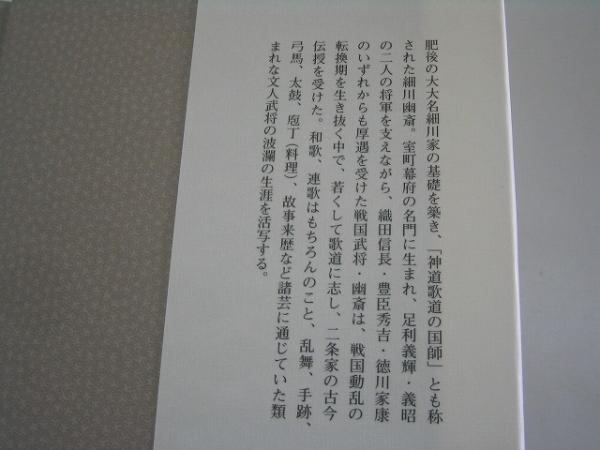 肥後の大大名細川家の基礎を築き、「神道歌道の国師」とも称
された細川幽斎。室町幕府の名門に生まれ、足利義輝・義昭
の二人の将軍を支えながら、織田信長・豊臣秀吉・徳川家康
のいずれからも厚遇を受けた戦国武将・幽斎は、戦国動乱の
転換期を生き抜く中で、若くして歌道に志し、二条家の古今
伝授を受けた。和歌、連歌はもちろんのこと、乱舞、手跡、
弓馬、太鼓、庖丁（料理）、故事来歴など諸芸に通じていた類
まれな文人武将の波瀾の生涯を活写する。